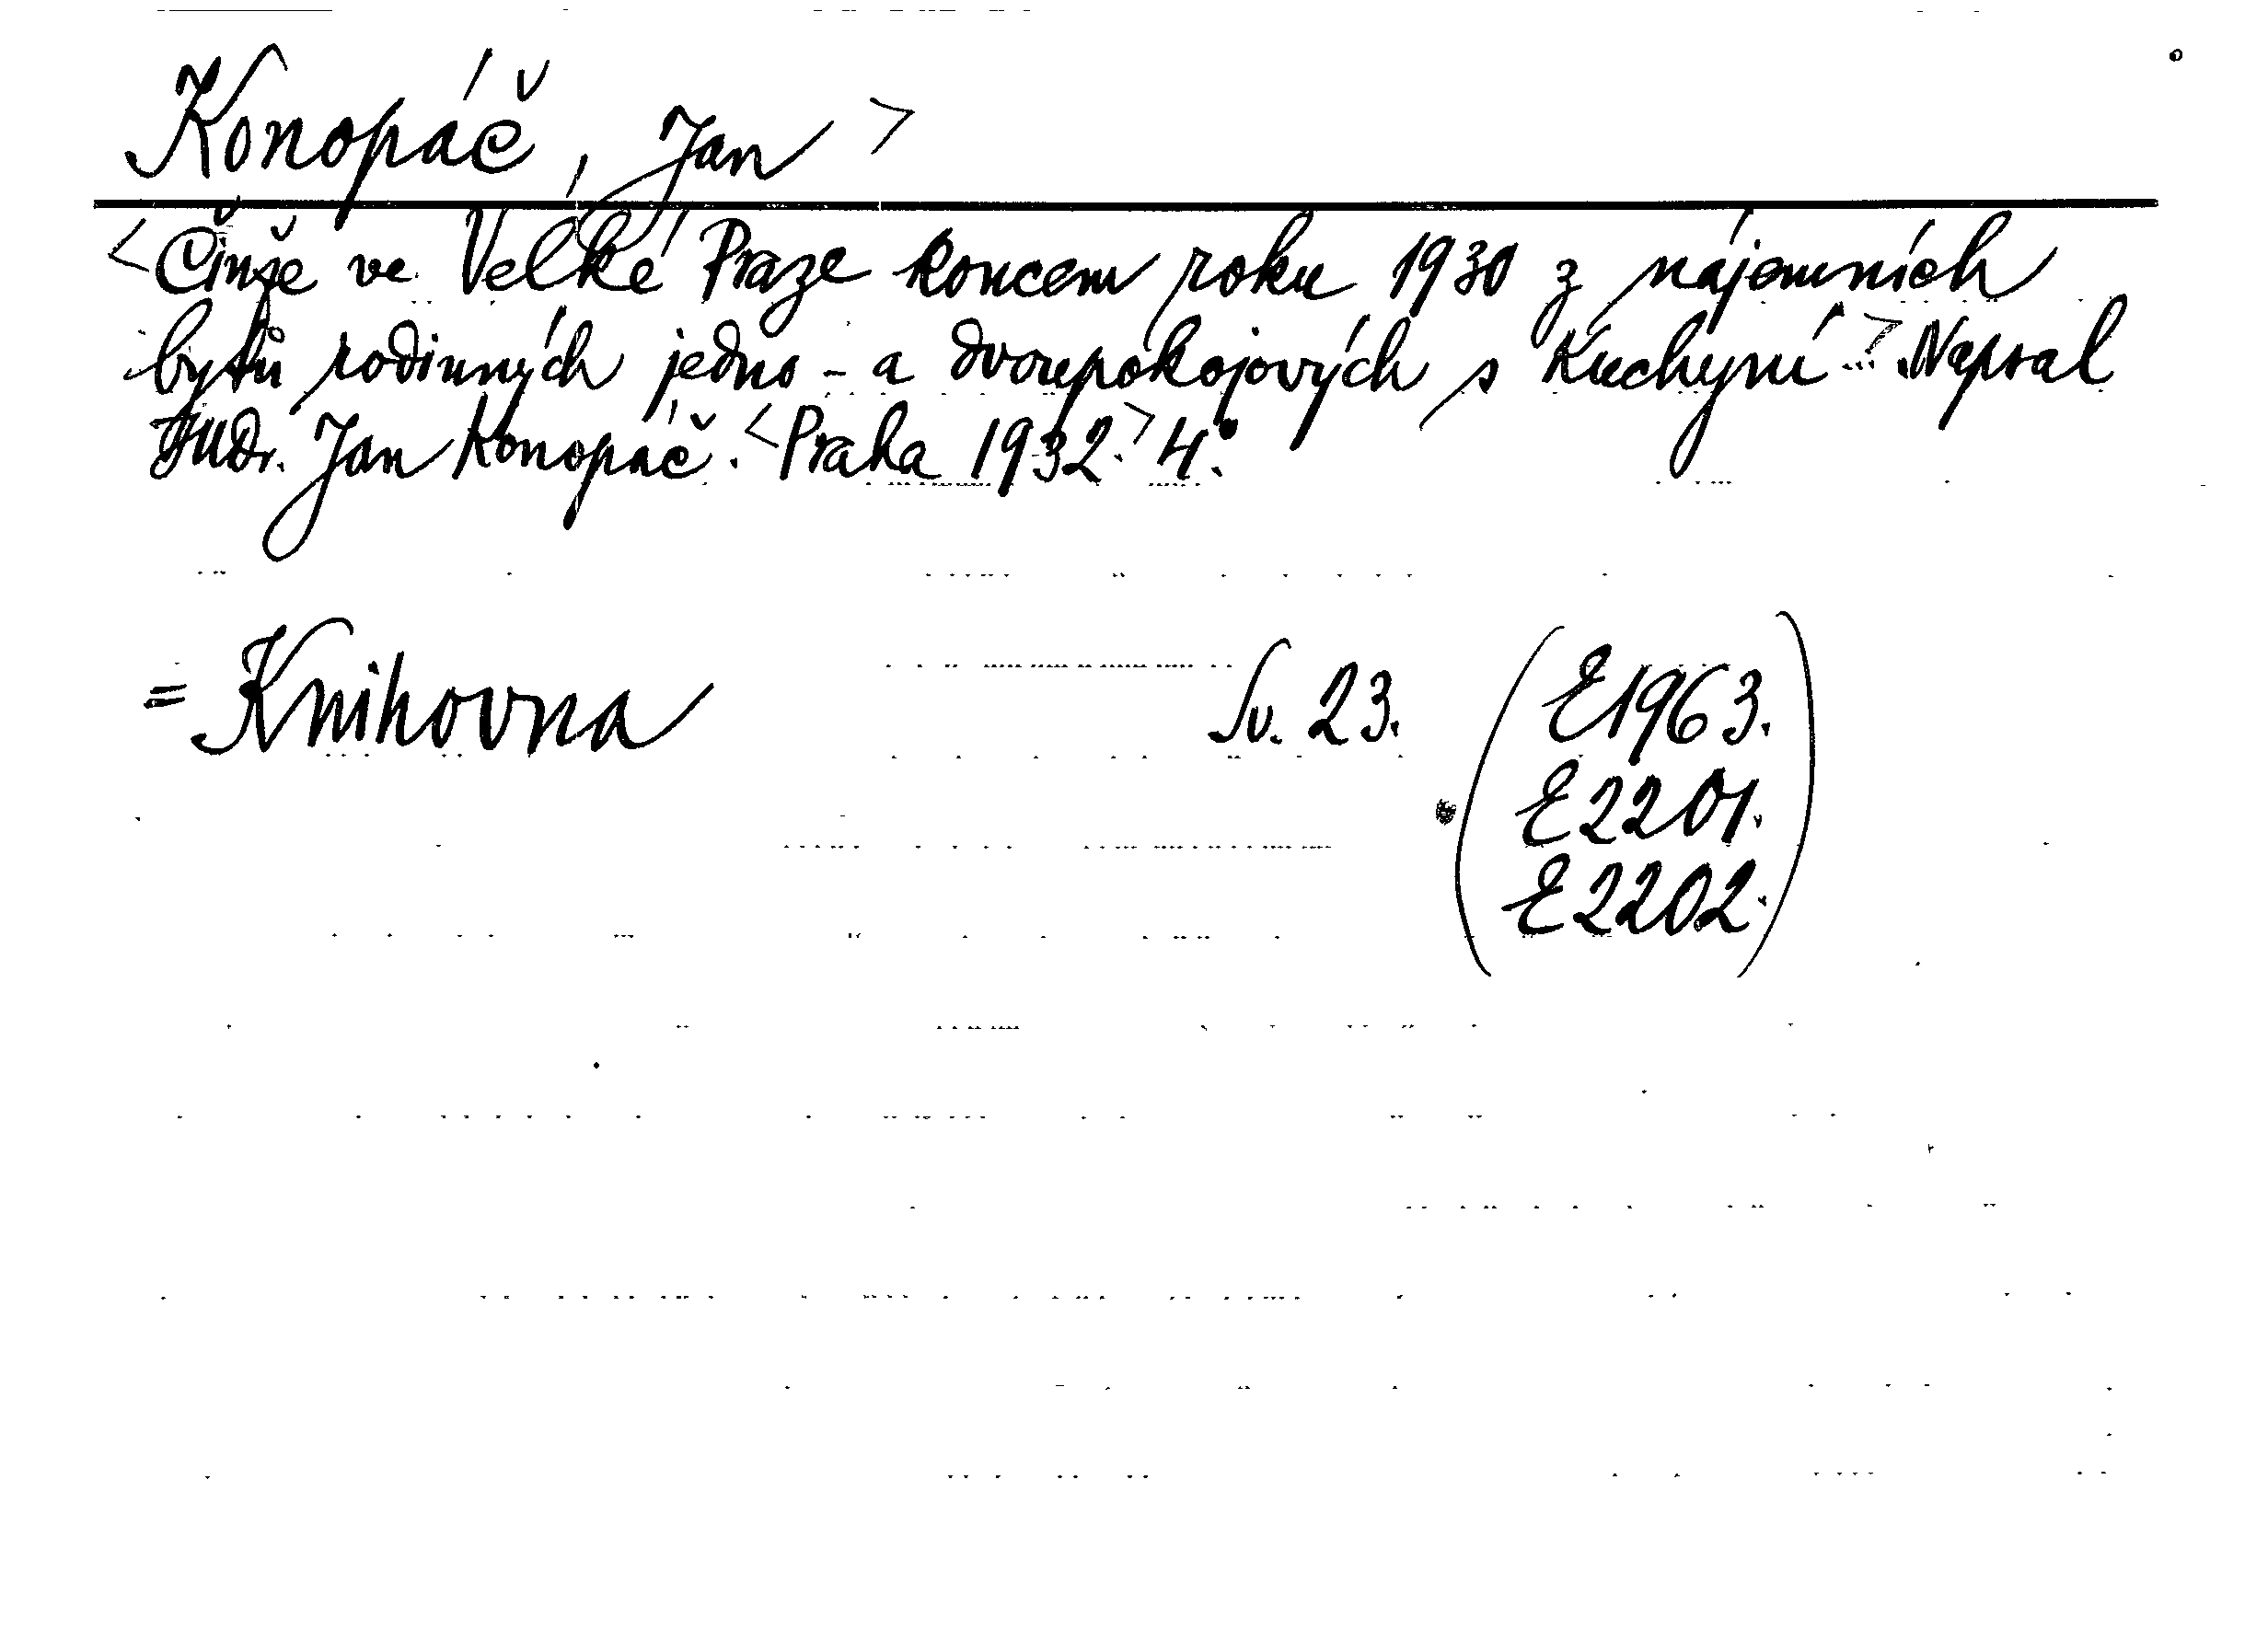 Konopáč, Jan >
<Činže ve Velké Praze koncem roku 1930 z nájemních
bytů rodinných jedno - a dvoupokojových s kuchyní>. Napsal
JUDr. Jan Konopáč. <Praha 1932.> 4°.
= Knihovna Sv. 23. (E1963.
E2201.
E2202.)